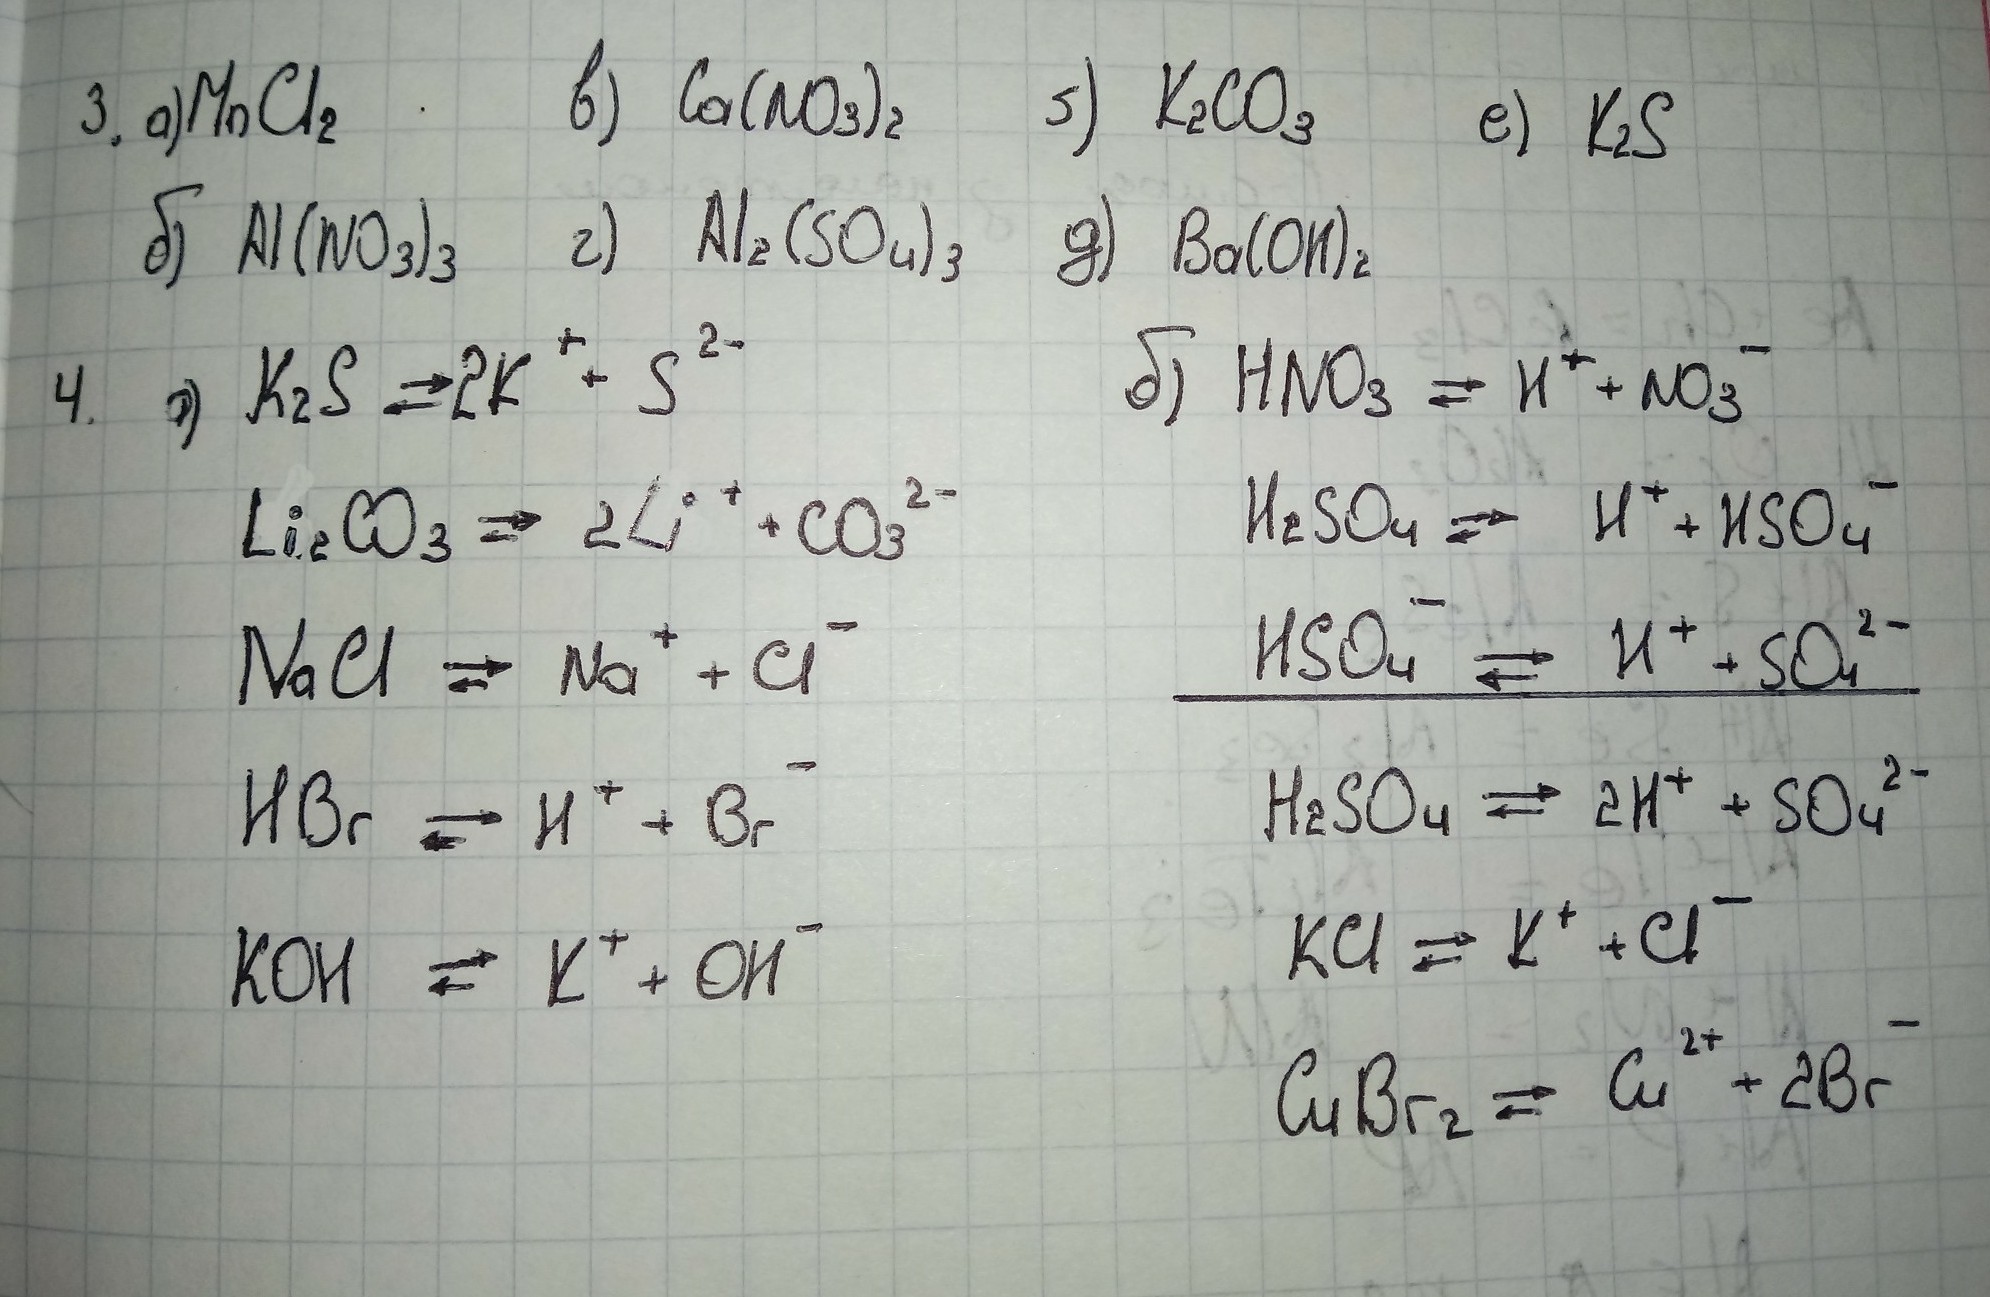 3. а) MnCl₂ в) Ca(NO₃)₂ 5) K₂CO₃ е) K₂S
б) Al(NO₃)₃ г) Al₂(SO₄)₃ д) Ba(OH)₂
4. а) K₂S ⇄ 2K⁺ + S²⁻ б) HNO₃ ⇄ H⁺ + NO₃⁻
Li₂CO₃ ⇄ 2Li⁺ + CO₃²⁻ H₂SO₄ ⇄ H⁺ + HSO₄⁻
NaCl ⇄ Na⁺ + Cl⁻ HSO₄⁻ ⇄ H⁺ + SO₄²⁻
HBr ⇄ H⁺ + Br⁻ H₂SO₄ ⇄ 2H⁺ + SO₄²⁻
KOH ⇄ K⁺ + OH⁻ KCl ⇄ K⁺ + Cl⁻
CuBr₂ ⇄ Cu²⁺ + 2Br⁻